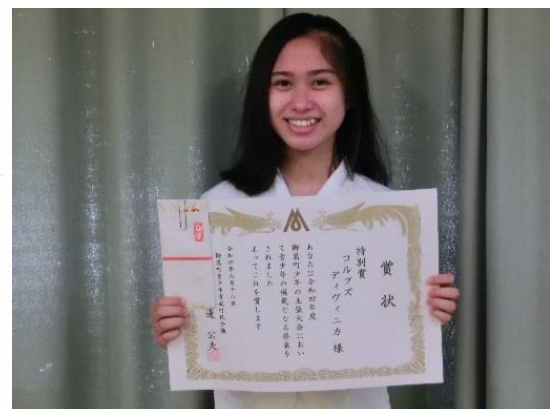 賞状
特別賞
コルプズ
ディヴィニカ 様
あなたは令和四年度
御嵩町少年の主張大会におい
て青少年の模範となる発表を
されました
よってこれを賞します
令和四年六月十八日
御嵩町青少年育成町民会議
公夫